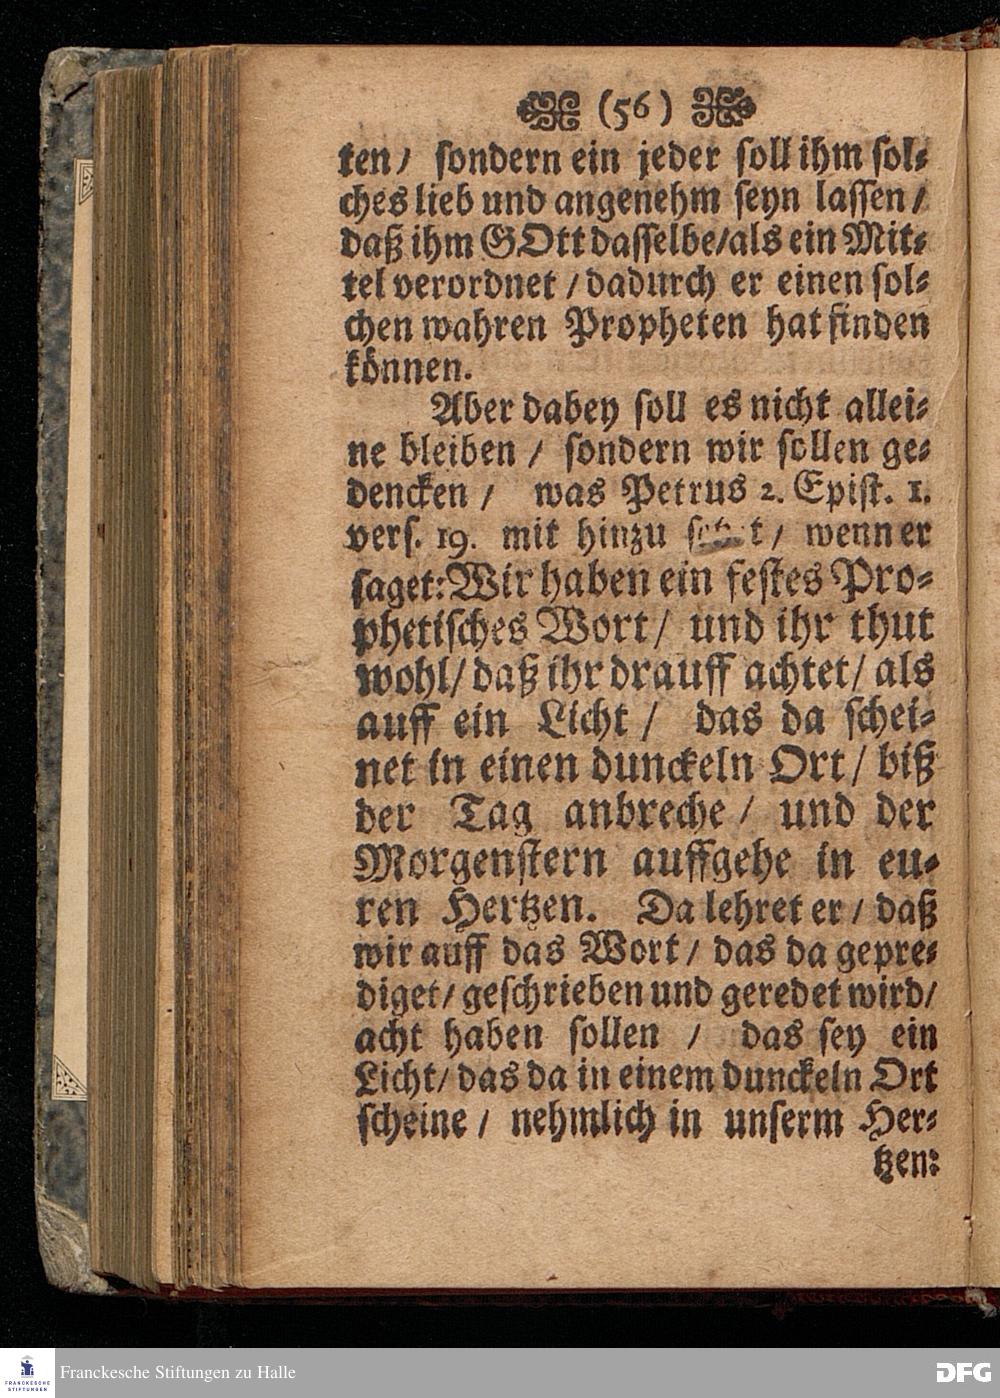 (56)
ten/ sondern ein jeder soll ihm sol-
ches lieb und angenehm seyn lassen/
daß ihm GOtt dasselbe/als ein Mit-
tel verordnet/dadurch er einen sol-
chen wahren Propheten hat finden
können.
Aber dabey soll es nicht allei-
ne bleiben/ sondern wir sollen ge-
dencken/ was Petrus 2. Epist. 1.
vers. 19. mit hinzu / wenn er
saget: Wir haben ein festes Pro-
phetisches Wort/ und ihr thut
wohl/daß ihr drauff achtet/ als
auff ein Licht/ das da schei-
net in einen dunckeln Ort/ biß
der Tag anbreche/ und der
Morgenstern auffgehe in eu-
ren Hertzen. Da lehret er/ daß
wir auff das Wort/ das da gepre-
diget/geschrieben und geredet wird/
acht haben sollen/ das sey ein
Licht/das da in einem dunckeln Ort
scheine/ nehmlich in unserm Her-
tzen:
FRANCKESCHE
STIFTUNGEN
Franckesche Stiftungen zu Halle
DFG